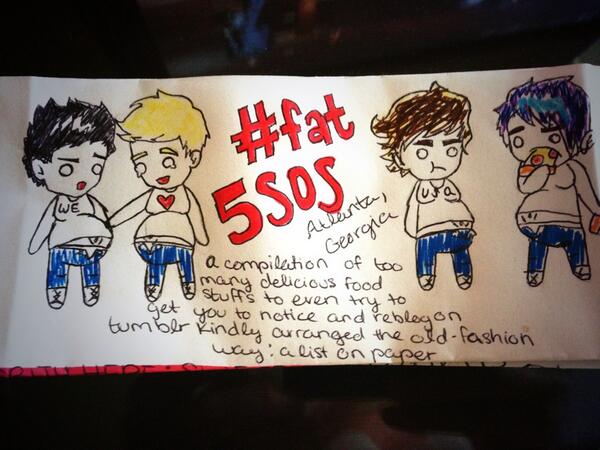 #fat
5SOS
WE
USA
Atlanta,
Georgia
a compilation of too
many delicious food
stuffs to even try to
get you to notice and reblog on
tumblr kindly arranged the old-fashion
way: a list on paper